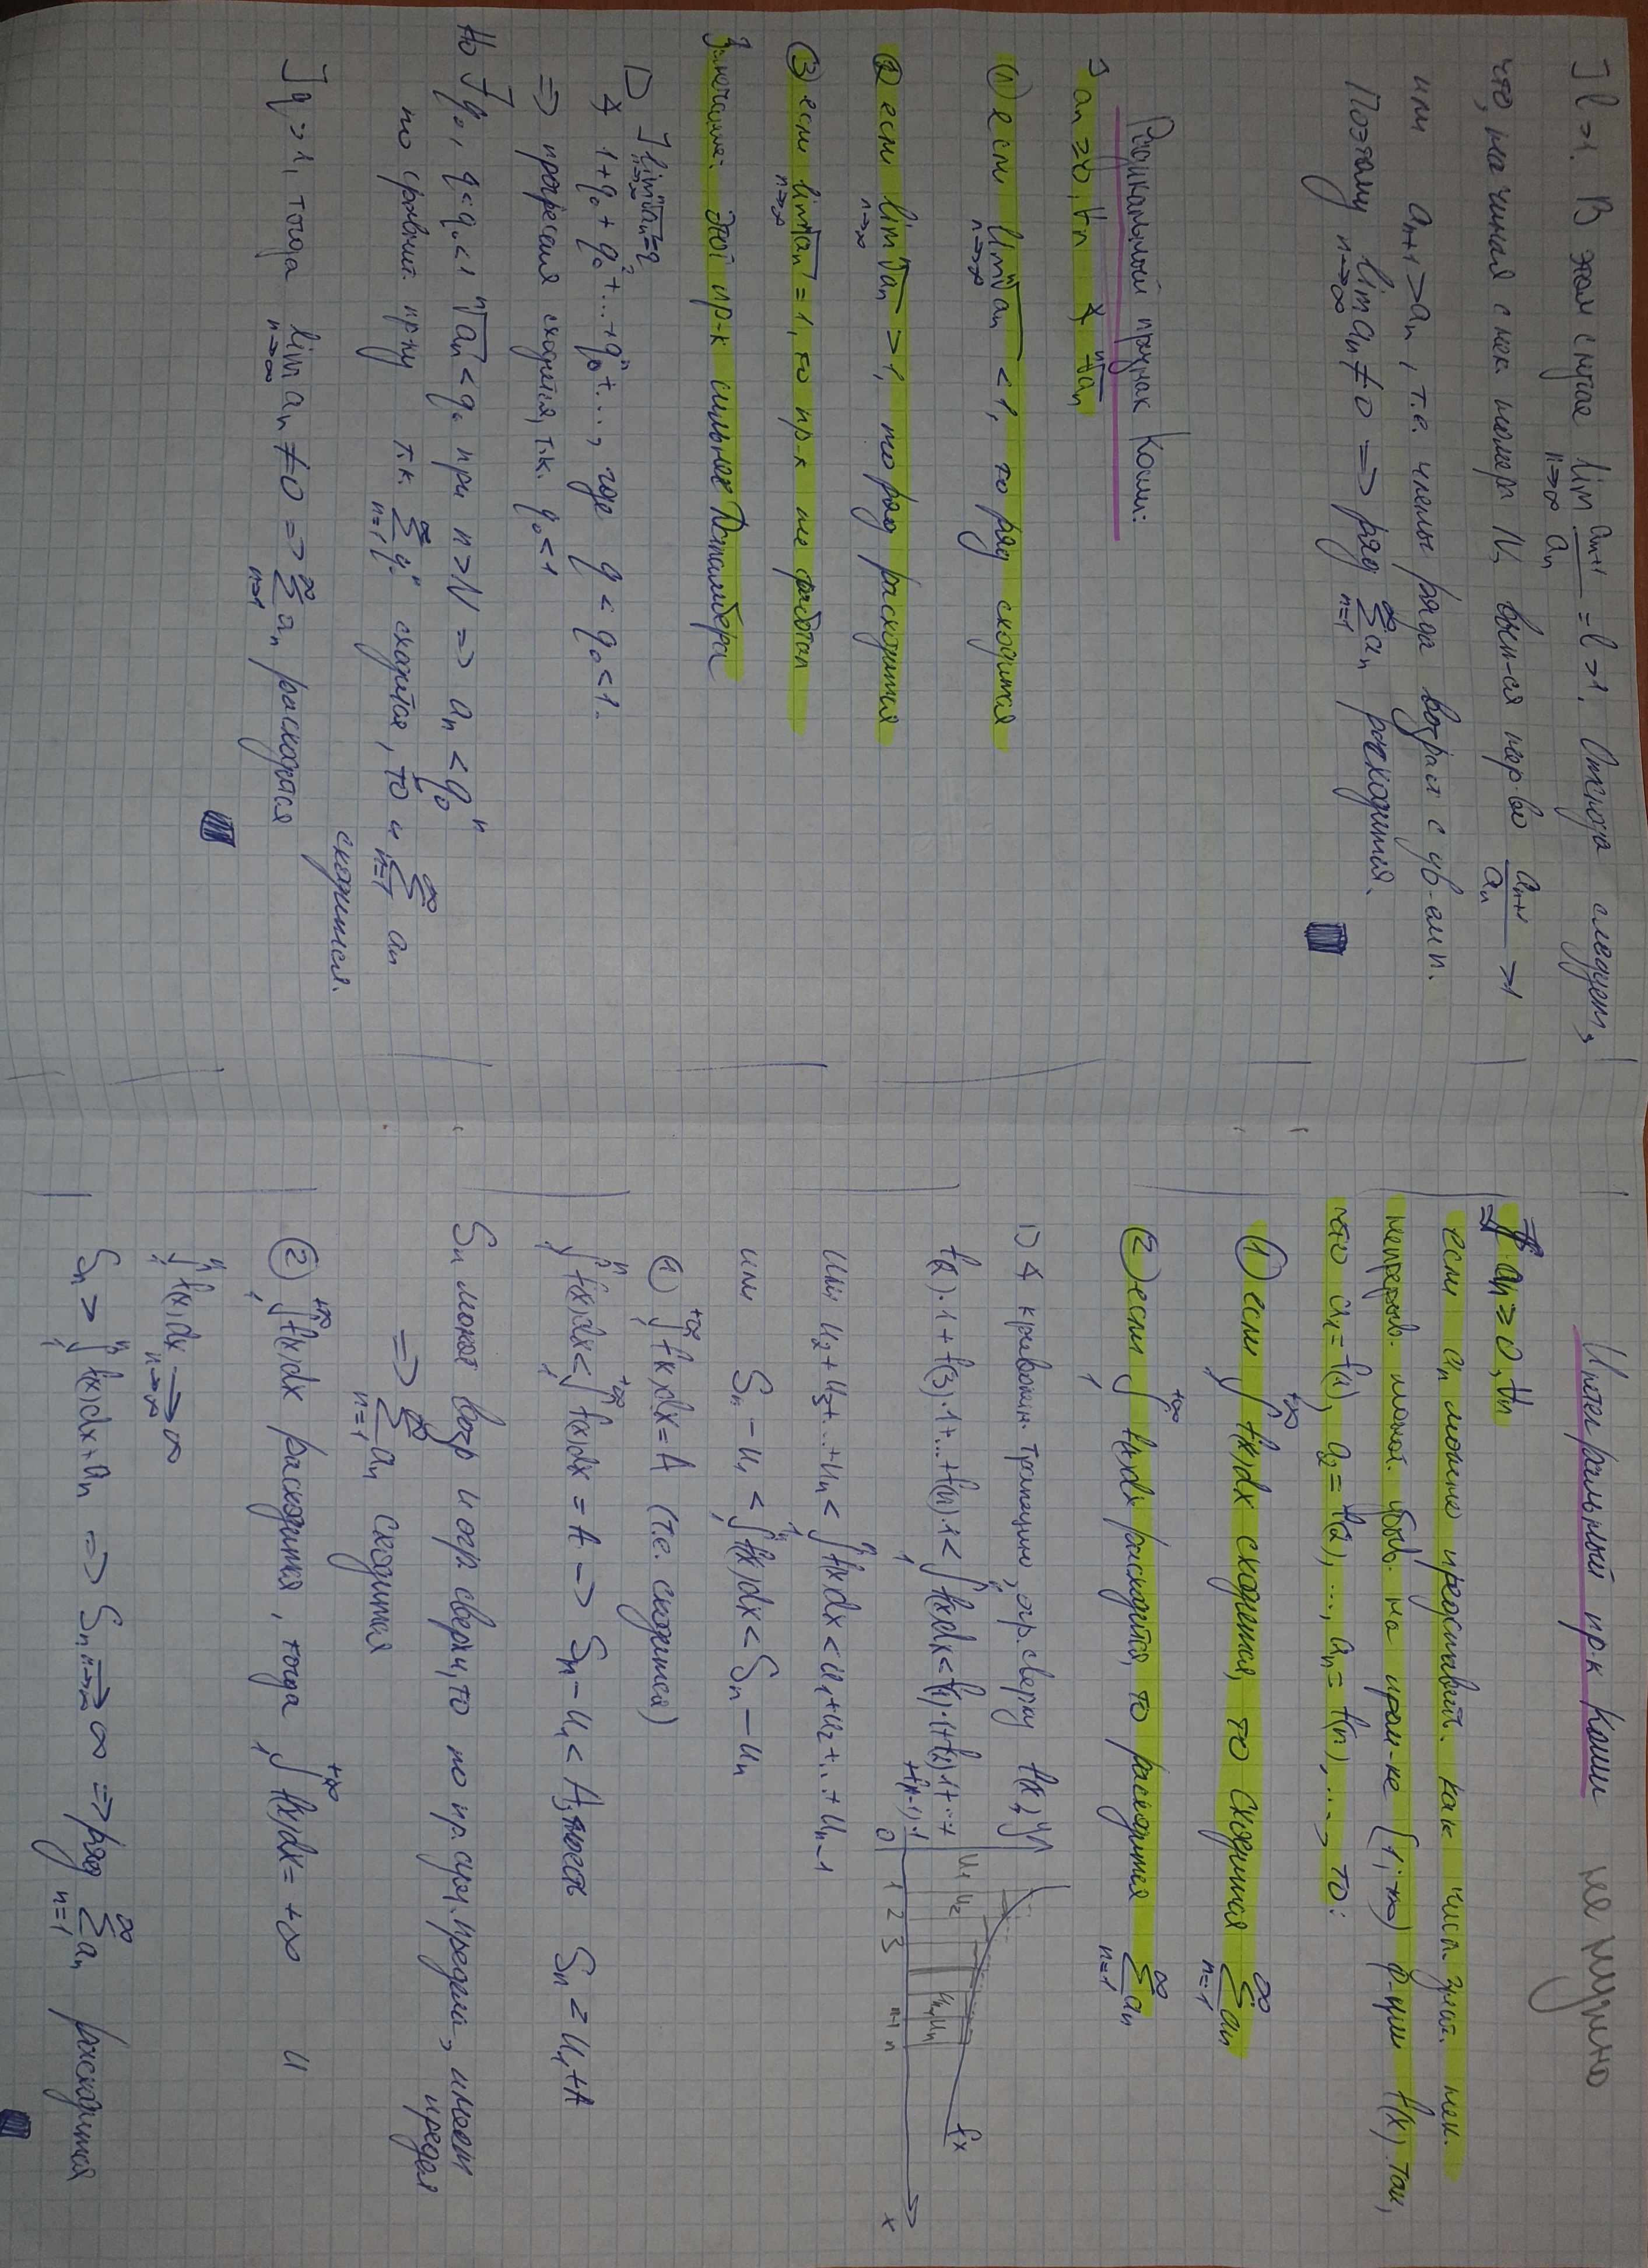 ] l>1. В этом случае lim_{n→∞} a_{n+1}/a_n = l > 1. Отсюда следует,
что, начиная с нек номера N, вып-ся нер-во a_{n+1}/a_n > 1
или a_{n+1} > a_n, т.е. члены ряда возраст с ув-ем n.
Поэтому lim_{n→∞} a_n ≠ 0 => ряд ∑_{n=1}^∞ a_n расходится.
Радикальный признак Коши:
] a_n ≥ 0, ∀n ∡ ⁿ√a_n
① если lim_{n→∞} ⁿ√a_n < 1, то ряд сходится
② если lim_{n→∞} ⁿ√a_n > 1, то ряд расходится
③ если lim_{n→∞} ⁿ√a_n = 1, то пр-к не работает
Замечание: этот пр-к сильнее Даламбера
D ] lim_{n→∞} ⁿ√a_n = q
∡ 1 + q_0 + q_0² + ... + q_0ⁿ + ..., где q < q_0 < 1.
=> прогрессия сходится, т.к. q_0 < 1
Но ∃ q_0, q < q_0 < 1 ⁿ√a_n < q_0 при n > N => a_n < q_0ⁿ
по сравнит. пр-ку т.к. ∑_{n=1}^∞ q_0ⁿ сходится, то и ∑_{n=1}^∞ a_n
сходится.
] q > 1, тогда lim_{n→∞} a_n ≠ 0 => ∑_{n=1}^∞ a_n расходится
Интегральный пр-к Коши не нужно
a_n ≥ 0, ∀n
если a_n можно представит. как числ. знач. нек.
непрерыв. монот. убыв. на пром-ке [1; +∞) ф-ции f(x) так,
что a_1 = f(1), a_2 = f(2), ..., a_n = f(n), ..., то:
① если ∫_1^{+∞} f(x)dx сходится, то сходится ∑_{n=1}^∞ a_n
② если ∫_1^{+∞} f(x)dx расходится, то расходится ∑_{n=1}^∞ a_n
D ∡ криволин. трапецию, огр. сверху f(x), y
f(2)·1 + f(3)·1 + ... + f(n)·1 < ∫_1^n f(x)dx < f(1)·1 + f(2)·1 + ... +
+ f(n-1)·1
u_1 u_2 u_{n-1} u_n
0 1 2 3 n-1 n x
fx
или u_2 + u_3 + ... + u_n < ∫_1^n f(x)dx < u_1 + u_2 + ... + u_{n-1}
или S_n − u_1 < ∫_1^n f(x)dx < S_n − u_n
① ∫_1^{+∞} f(x)dx = A (т.е. сходится)
∫_1^n f(x)dx < ∫_1^{+∞} f(x)dx = A => S_n − u_1 < A, то есть S_n < u_1 + A
S_n монот возр и огр. сверху, то по пр. сущ. предела, имеет
предел
=> ∑_{n=1}^∞ a_n сходится
② ∫_1^{+∞} f(x)dx расходится, тогда ∫_1^{+∞} f(x)dx = +∞ и
∫_1^n f(x)dx →_{n→∞} ∞
S_n > ∫_1^n f(x)dx + a_n => S_n →_{n→∞} ∞ => ряд ∑_{n=1}^∞ a_n расходится